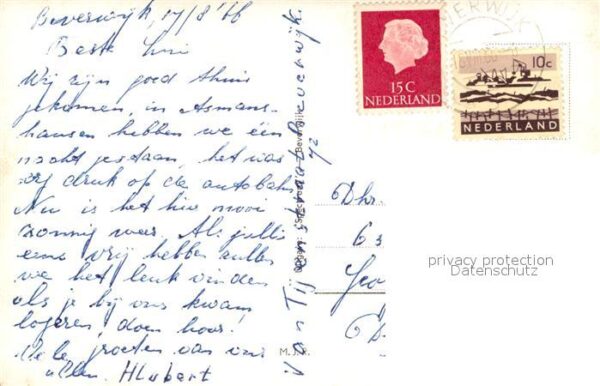 Beverwijk, 17/8 '66
Beste Lui
Wij zijn goed thuis
gekomen, in Asmans-
hausen hebben we één
nacht gestaan, het was
erg druk op de autobahn
Nu is het hier mooi
zonnig weer. Als jullie
eens vrij hebben zullen
we het leuk vinden
als je bij ons kwam
logeren, doen hoor!
Vele groeten van ons
allen. Hubert
Beverwijk
72
M.J.R.
15 C
NEDERLAND
10c
NEDERLAND
Dhr.
privacy protection
Datenschutz